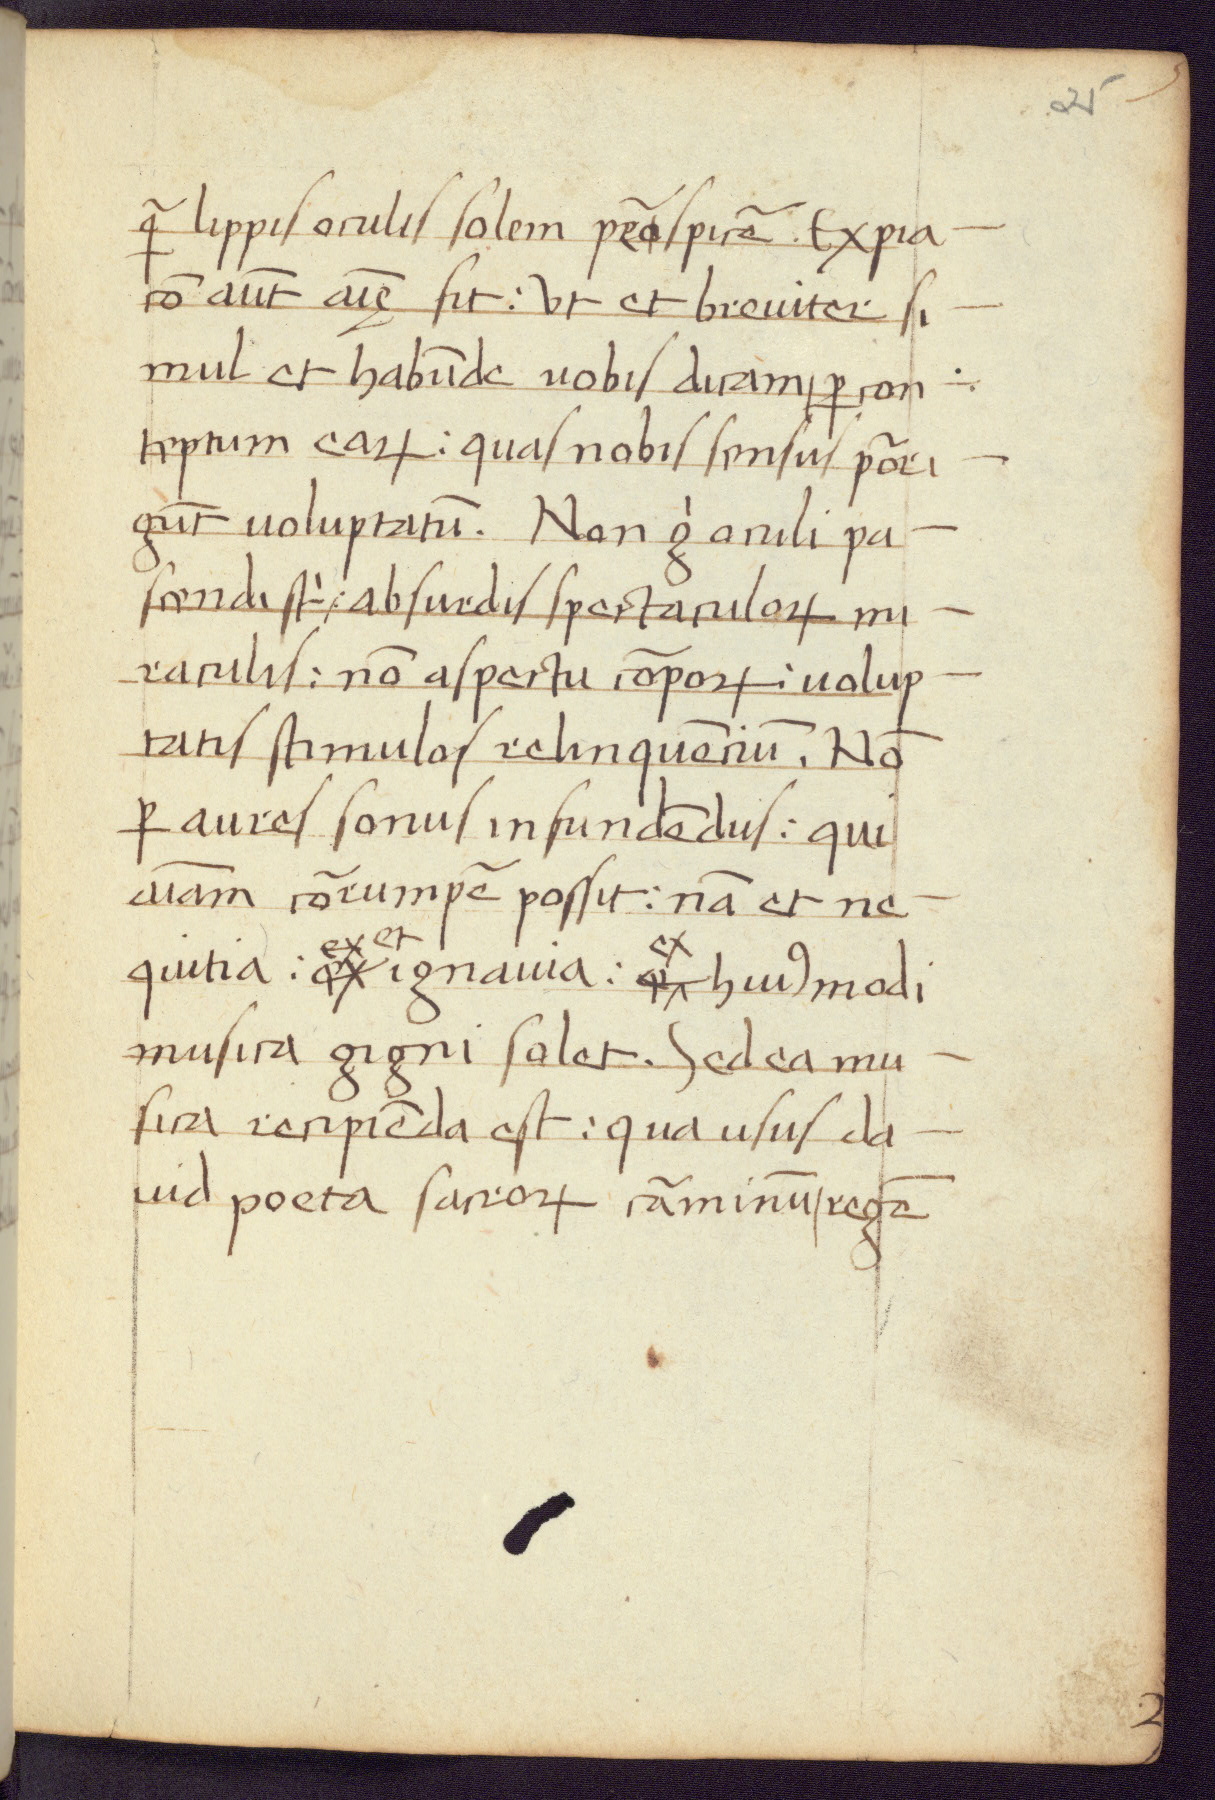 25
q̄ lippis oculis solem p̄spicē. Expia—
cō aūt aīę sit: Vt et breuiter si—
mul et habūde uobis dicam p̱ con—
teptum eaꝝ: quas nobis sensus pōri—
gūt uoluptatū. Non g̀ oculi pa—
scendi st̄: absurdis spectaculoꝝ mi—
raculis: nō aspectu cōpoꝝ: uolup—
tatis stimulos relinquētiū. Nō
ꝑ aures sonus infundēdus: qui
aīam cōrumpē possit: nā et ne—
quitia: ex et ignauia: ex huiꝰmodi
musica gigni solet. Sed ea mu—
sica recipiēda est: qua usus da—
uid poeta sacroꝝ cāminū regē
2